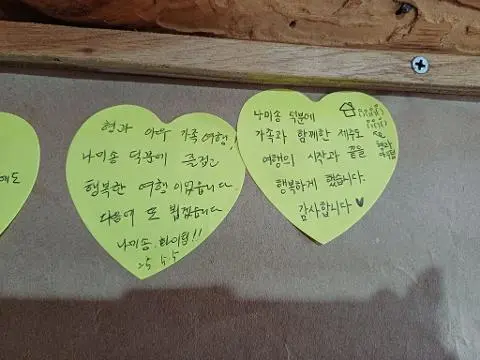 형과 아우 가족여행!
나미송 덕분에 즐겁고
행복한 여행이었습니다
다음에 또 뵙겠습니다
나미송 화이팅!!
25. 5. 5
나미송 덕분에
가족과 함께한 제주도
여행의 시작과 끝을
행복하게 했습니다.
감사합니다 ♥